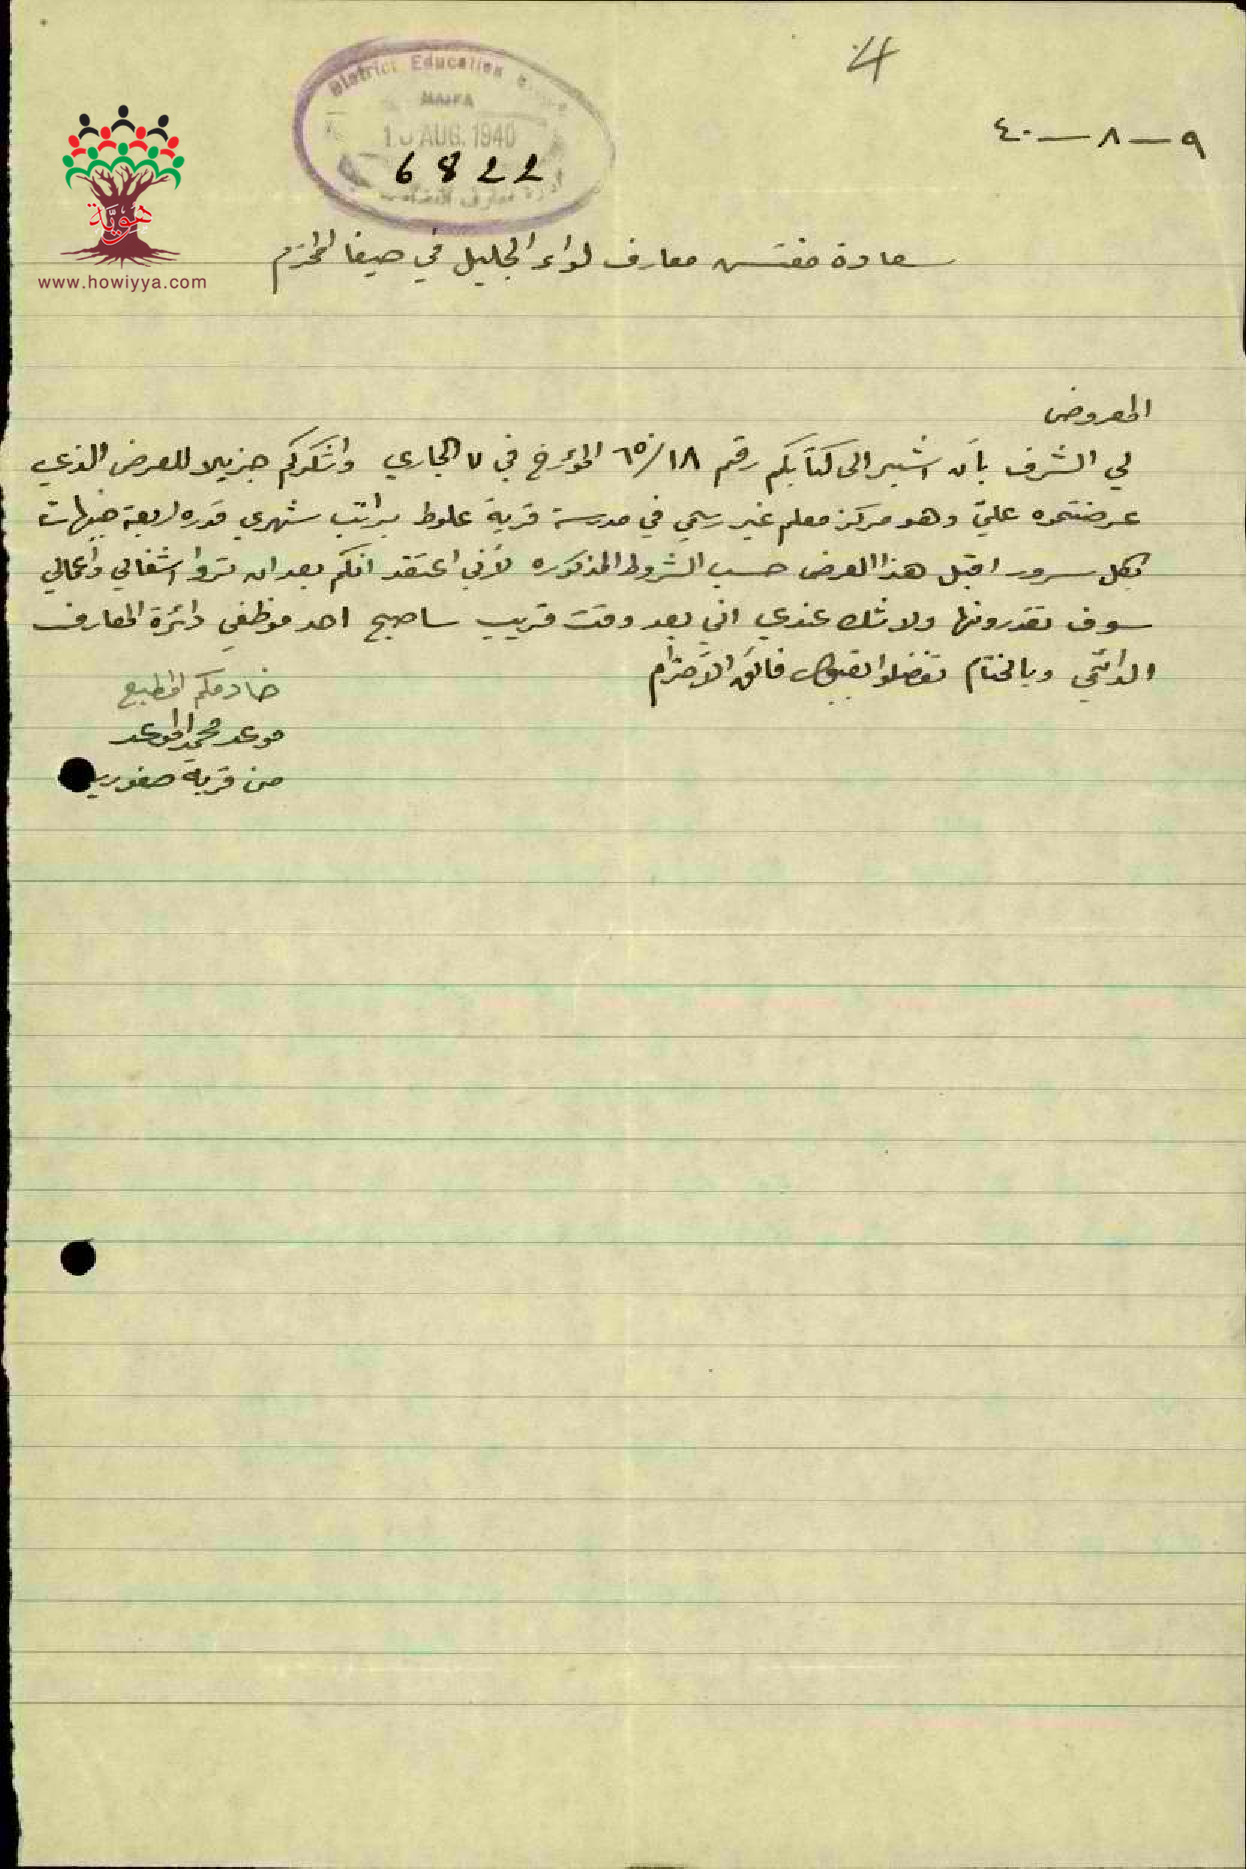 4
District Education
HAIFA
AUG. 1940
6822
٩ – ٨ – ٤٠
هوية
www.howiyya.com
سعادة مفتش معارف لواء الجليل في حيفا المحترم
المعروض
لي الشرف بأن اشير الى كتابكم رقم ٦٥/١٨ المؤرخ في ٧ الجاري واشكركم جزيلا للعرض الذي
عرضتموه عليّ وهو مركز معلم غير رسمي في مدرسة قرية علوط براتب شهري قدره اربعة جنيهات
بكل سرور اقبل هذا العرض حسب الشروط المذكوره لأني اعتقد انكم بعد ان تروا اشغالي وأعمالي
سوف تقدرونها ولا شك عندي اني بعد وقت قريب ساصبح احد موظفي دائرة المعارف
الدائمي وبالختام تفضلوا بقبول فائق الاحترام
خادمكم المطيع
موعد محمد الموعد
من قرية صفورية